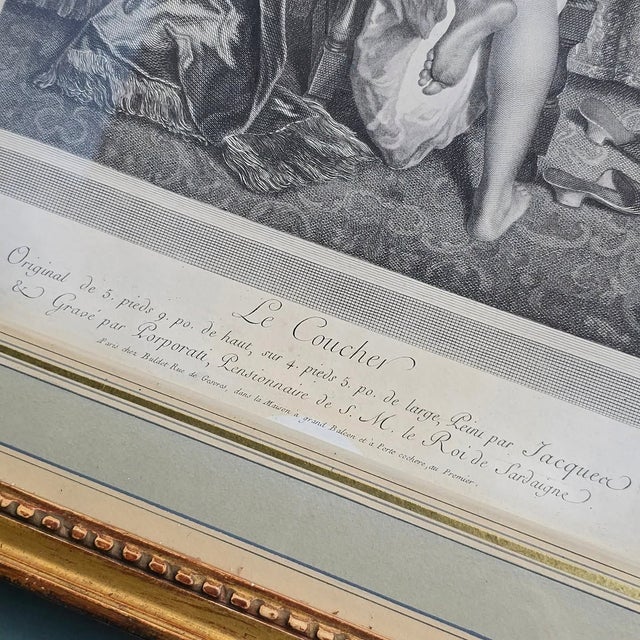 Le Coucher
Original de 5. pieds 9. po. de haut, sur 4. pieds 5. po. de large, Peint par Jacques
& Gravé par Porporati, Pensionnaire de S. M. le Roi de Sardaigne
Paris chez Buldet Rue de Gesvres, dans la Maison a grand Balcon et a Porte cochere, au Premier.